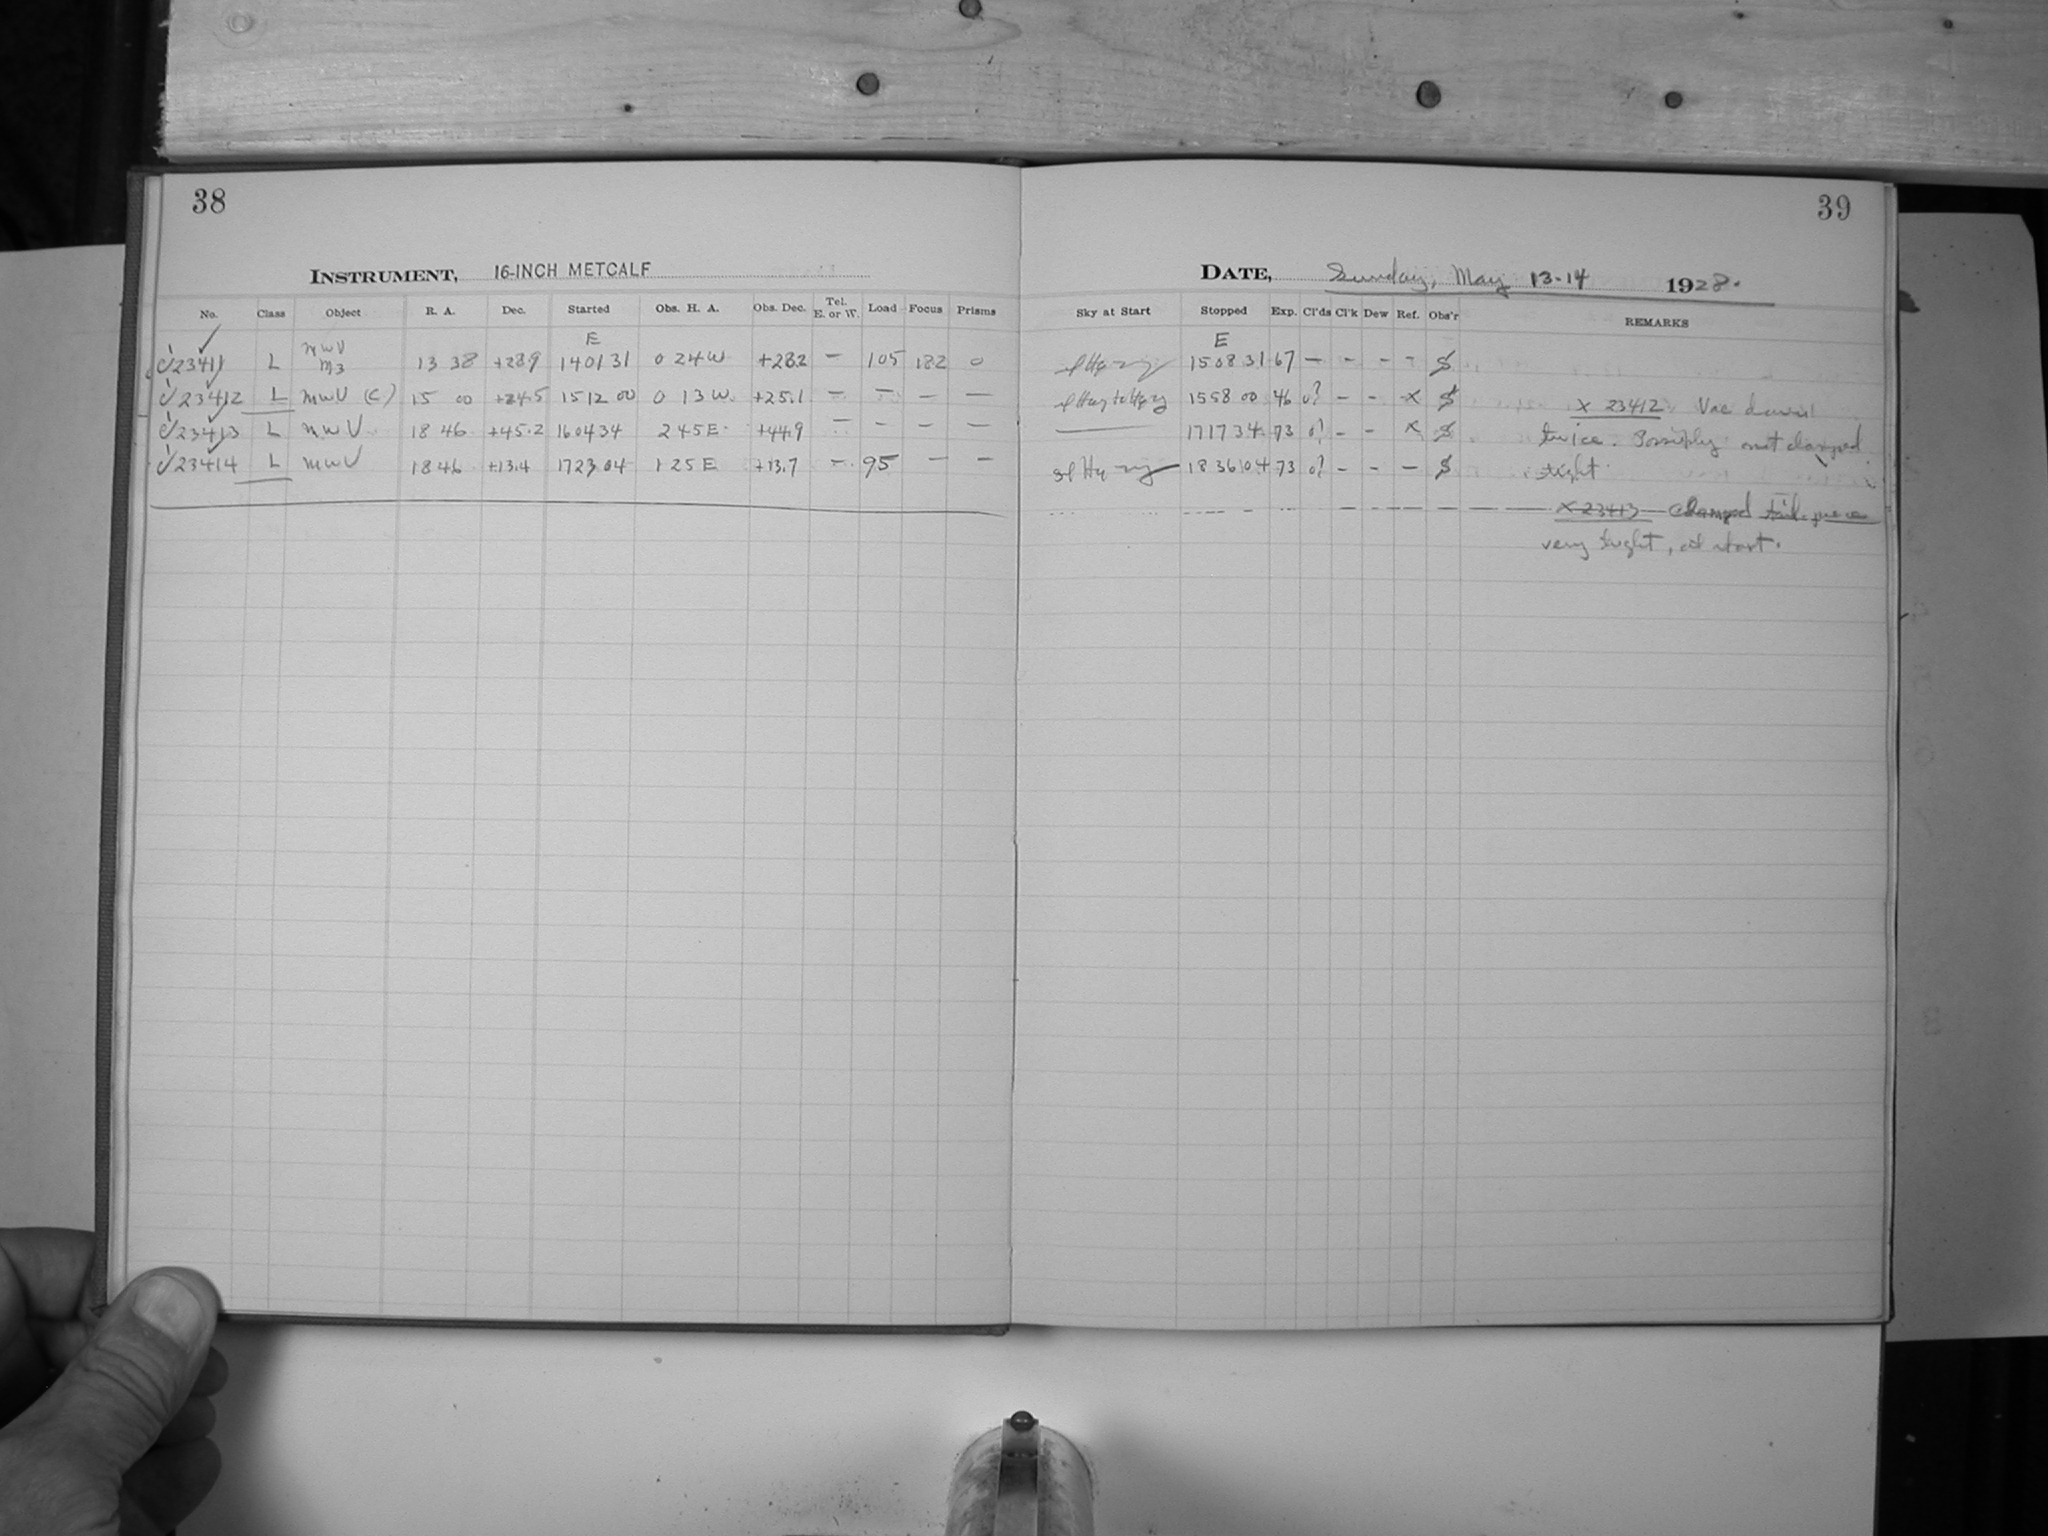 38
INSTRUMENT, 16-INCH METCALF
No. Class Object R. A. Dec. Started Obs. H. A. Obs. Dec. Tel. E. or W. Load Focus Prisms
E
MWV
23411 L M3 13 38 +28.9 14 01 31 0 24 W +28.2 – 105 182 0
23412 L MWV (C) 15 00 +24.5 15 12 00 0 13 W. +25.1 – – – –
23413 L MWV 18 46 +45.2 16 04 34 2 45 E. +44.9 – – – –
23414 L MWV 18 46 +13.4 17 23 04 1 25 E +13.7 – 95 – –
39
DATE, Sunday, May 13-14 1928.
Sky at Start Stopped Exp. Cl'ds Cl'k Dew Ref. Obs'r REMARKS
E
15 08 31 67 – – – –
15 58 00 46 0? – – X X 23412 Vac down
17 17 34 73 0? – – X twice. Possibly not clamped
18 36 04 73 0? – – – tight.
X 23413 Clamped tail-piece
very tight, at start.